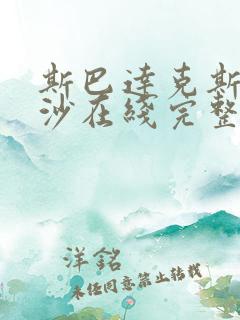 斯巴達克斯
沙在綫完整
洋銘
未经同意禁止转载